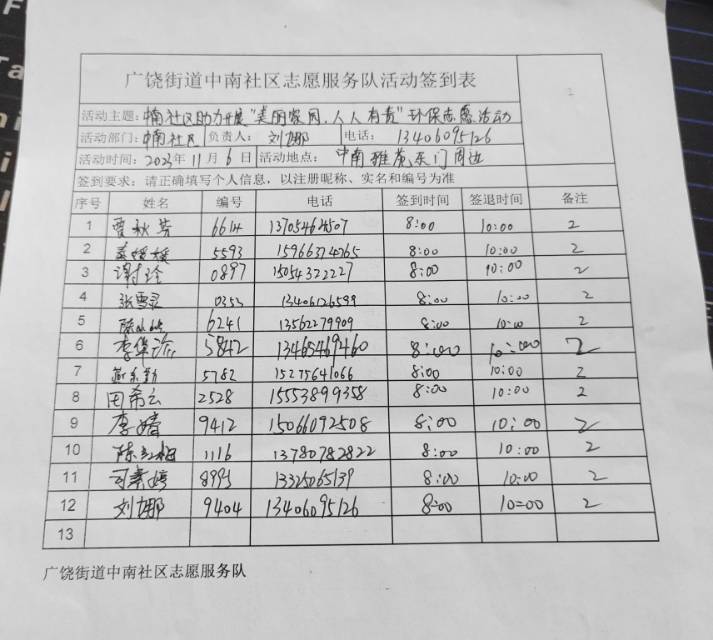 广饶街道中南社区志愿服务队活动签到表
活动主题：中南社区助力开展"美丽家园，人人有责"环保志愿活动
活动部门：中南社区 负责人：刘娜 电话：13406095126
活动时间：2023年11月6日 活动地点：中南雅苑东门周边
签到要求：请正确填写个人信息，以注册昵称、实名和编号为准
序号 姓名 编号 电话 签到时间 签退时间 备注
1 曹秋芳 6614 13705464507 8:00 10:00 2
2 媛媛 5593 15966374065 8:00 10:00 2
3 谢玲 0897 15054322227 8:00 10:00 2
4 张雪灵 0353 13406126599 8:00 10:00 2
5 6241 13562279909 8:00 10:00 2
6 李 5842 13465469460 8:00 10:00 2
7 5782 15275641066 8:00 10:00 2
8 田希云 2528 15553899358 8:00 10:00 2
9 李婧 9412 15066092508 8:00 10:00 2
10 陈 1116 13780782822 8:00 10:00 2
11 司素婷 8993 13325065139 8:00 10:00 2
12 刘娜 9404 13406095126 8:00 10:00 2
13
广饶街道中南社区志愿服务队